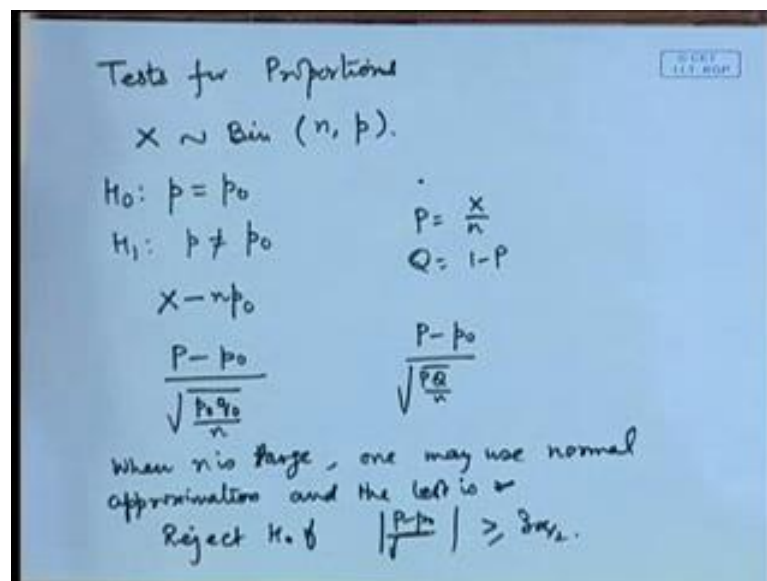 Tests for Proportions
© CET
I.I.T. KGP
X ~ Bin (n, p).
H₀: p = p₀
H₁: p ≠ p₀
P = X/n
Q = 1-P
X - np₀
(P - p₀)/√(p₀q₀/n)
(P - p₀)/√(PQ/n)
When n is large, one may use normal
approximation and the test is
Reject H₀ if |(P-p₀)/√| ≥ z_{α/2}.